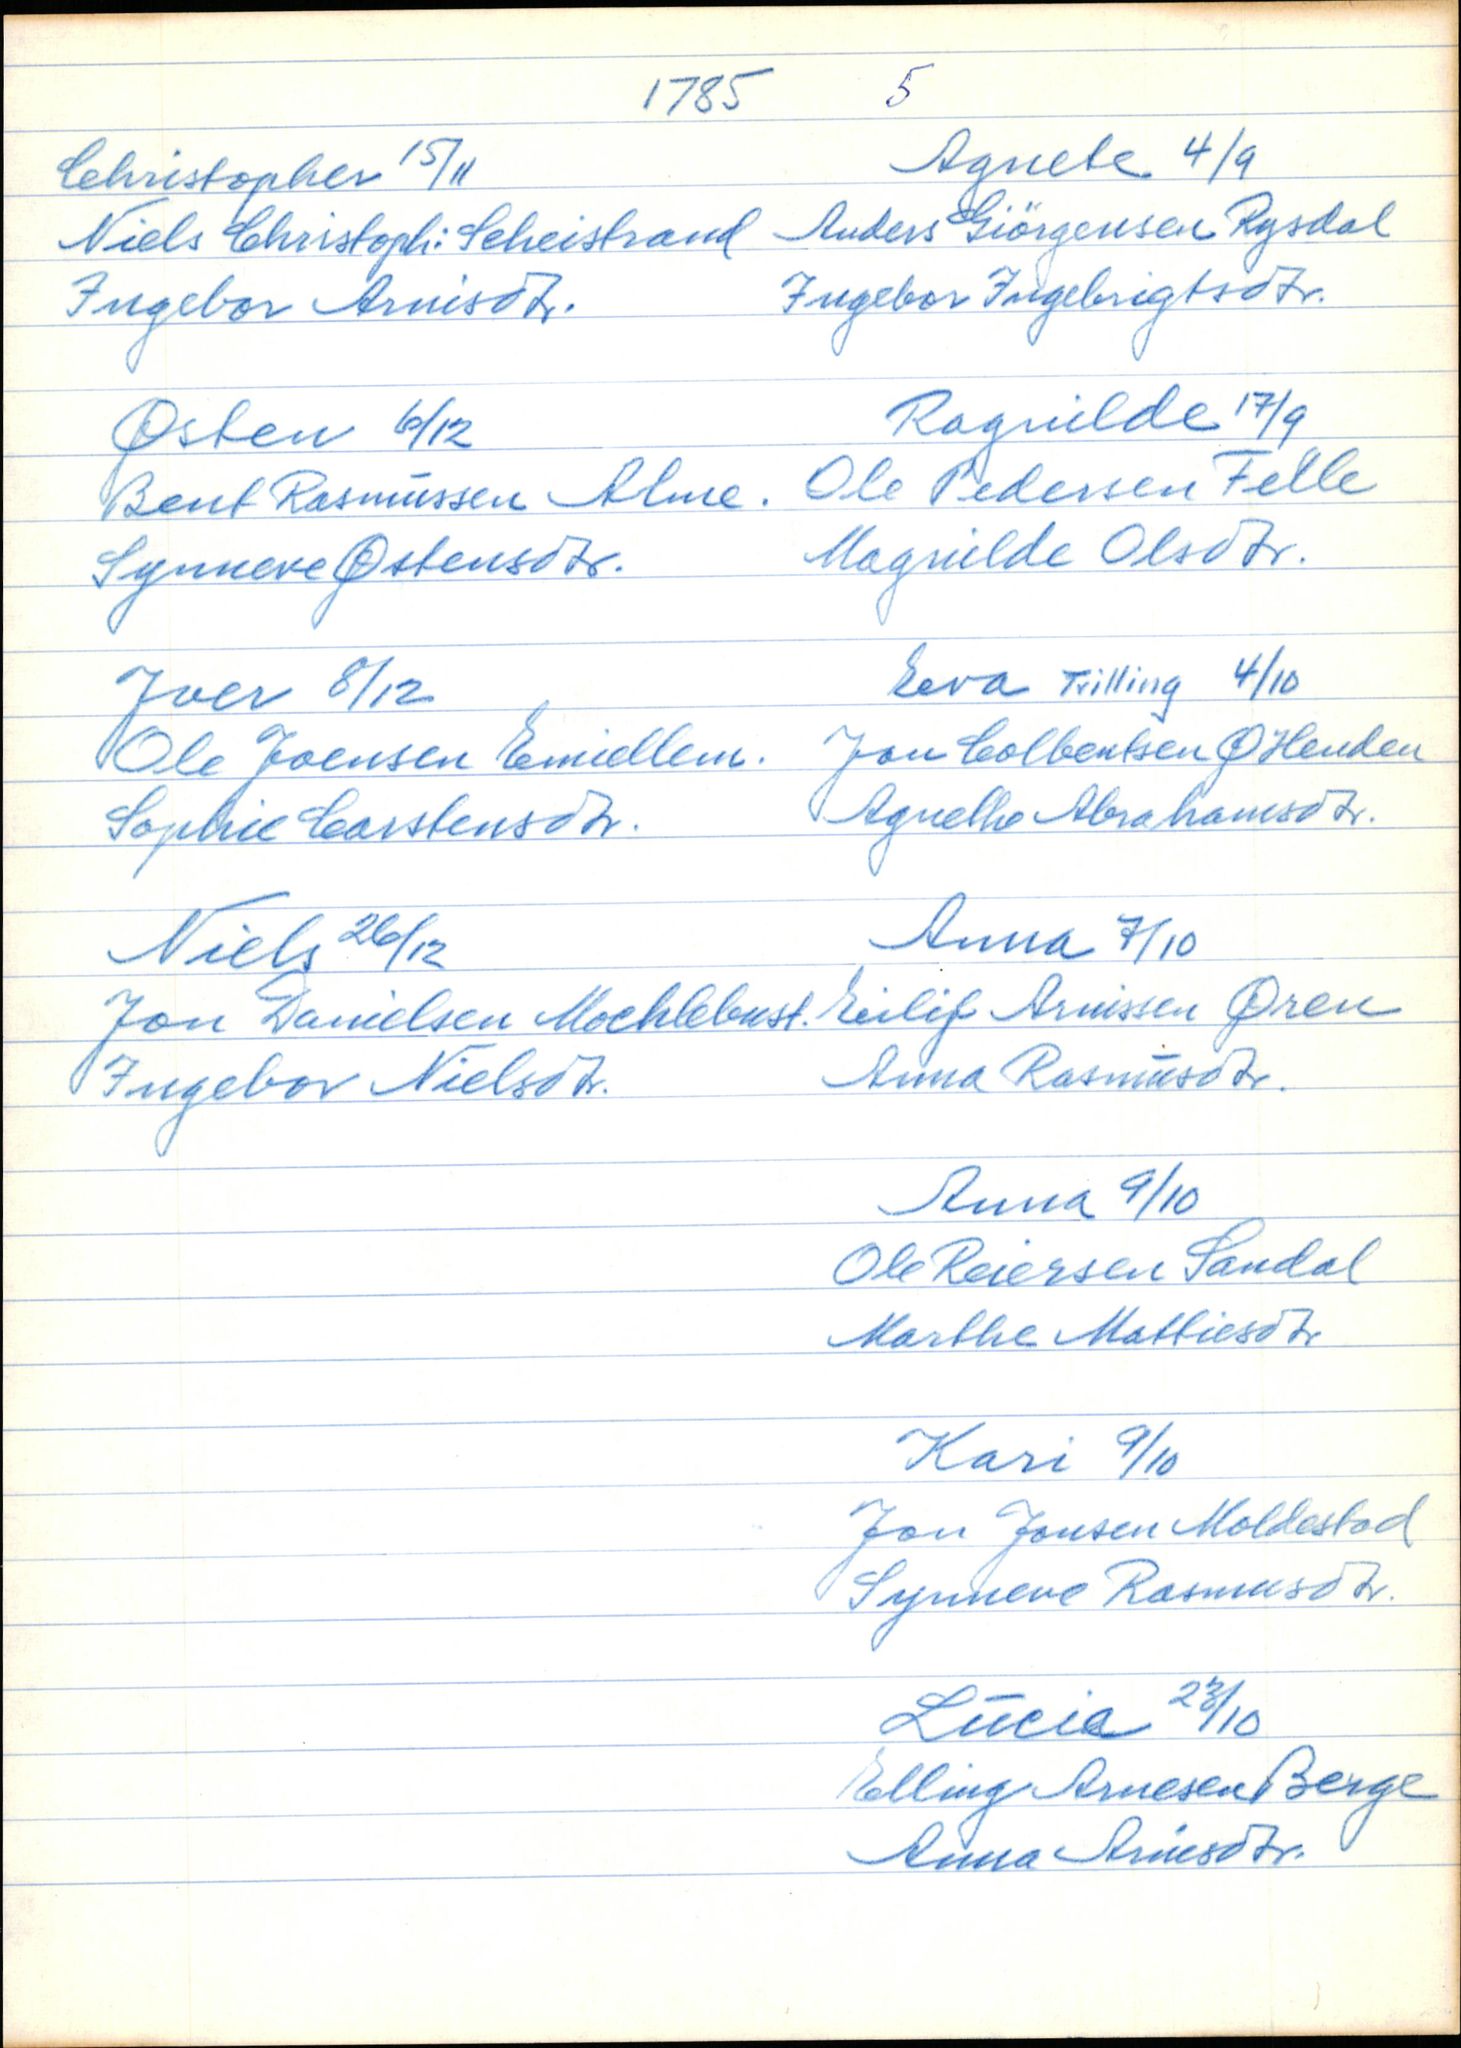 1785 5
Christopher 15/11
Niels Christoph: Scheistrand
Ingebor Arnisdtr.
Østen 6/12
Bent Rasmüssen Alme.
Synneve Østensdtr.
Iver 8/12
Ole Joensen Emiellem.
Sophie Carstensdtr.
Niels 26/12
Jon Danielsen Mochlebust.
Ingebor Nielsdtr.
Agnete 4/9
Anders Giörgensen Rysdal
Ingebor Ingebrigtsdtr.
Ragnilde 17/9
Ole Pedersen Felle
Magnilde Olsdtr.
Eeva Trilling 4/10
Jon Colbentsen ØHenden
Agnethe Abrahamsdtr.
Anna 7/10
Eilif Arnissen Øren
Anna Rasmüsdtr.
Anna 9/10
Ole Reiersen Sandal
Marthe Mattiesdtr
Kari 9/10
Jon Jonsen Moldestad
Synneve Rasmusdtr.
Lücia 23/10
Elling Arnesen Berge
Anna Arnesdtr.